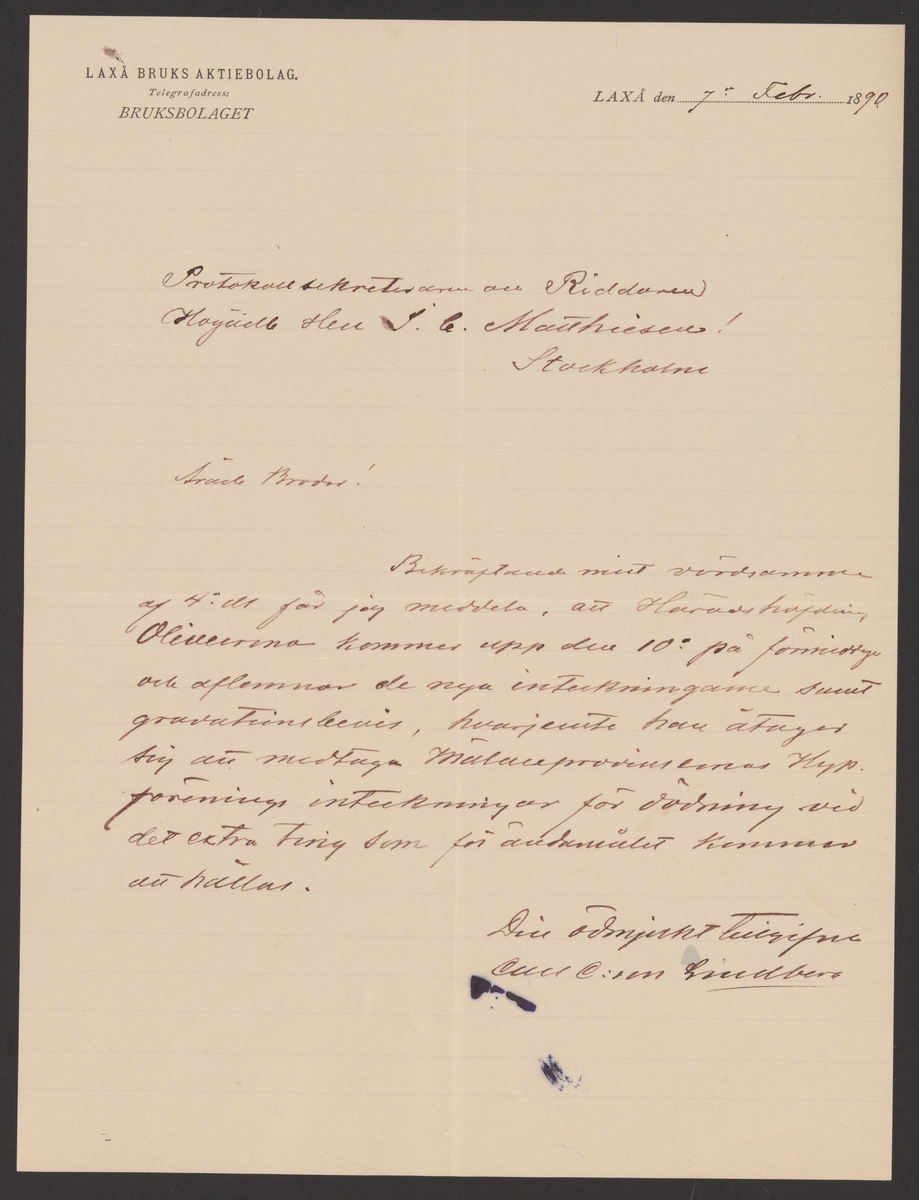 LAXÅ BRUKS AKTIEBOLAG.
Telegrafadress:
BRUKSBOLAGET
LAXÅ den 7de Febr. 1890
Protokollsekreteraren och Riddaren
Högädle Herr J. C. Matthiesen!
Stockholm
Ärade Broder!
Bekräftande mitt vördsamma
af 4: ds får jag meddela, att Häradshöfding
Olivecrona kommer upp den 10: på förmiddagen
och aflemnar de nya inteckningarne samt
gravationsbevis, hvarjemte han åtager
sig att medtaga Mälareprovinsernas Hyp.
förenings inteckningar för dödning vid
det extra ting som för ändamålet kommer
att hållas.
Din ödmjukt tillgifne
Carl C:son Lindberg